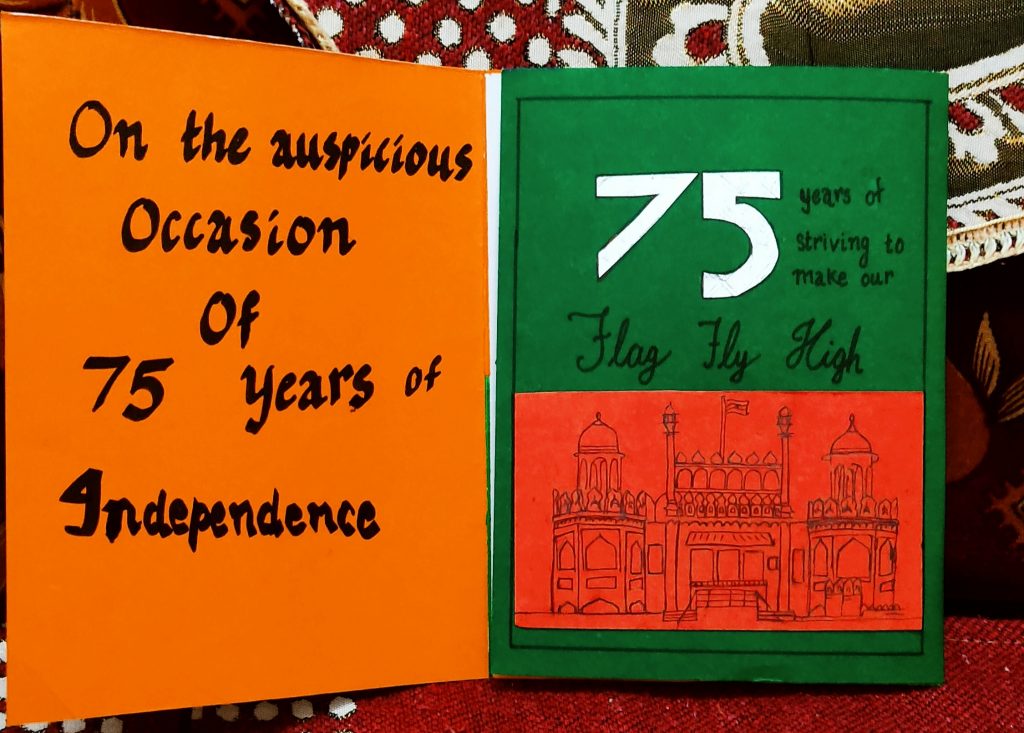 On the auspicious
Occasion
Of
75 years of
Independence
75 years of
striving to
make our
Flag Fly High